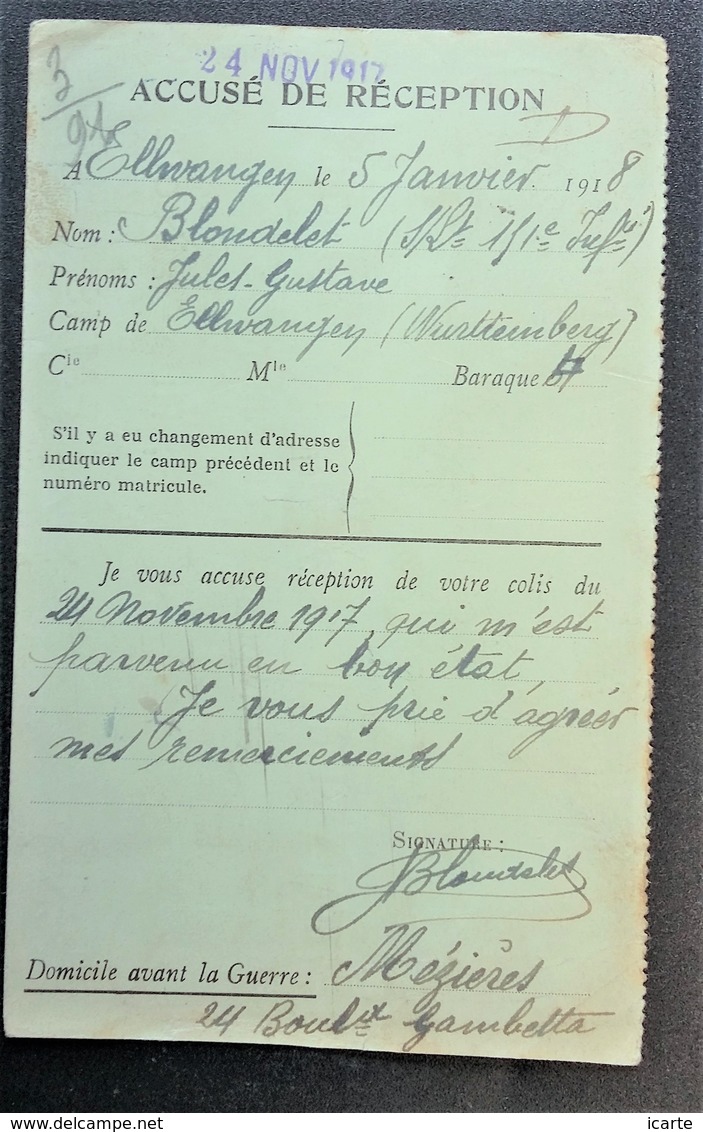 24 NOV 1917
3
ACCUSÉ DE RÉCEPTION
A Ellwangen le 5 Janvier 1918
Nom : Blondelet (S/Lt 151e Infie)
Prénoms : Jules-Gustave
Camp de Ellwangen (Wurttemberg)
Cie Mle Baraque
S'il y a eu changement d'adresse
indiquer le camp précédent et le
numéro matricule.
Je vous accuse réception de votre colis du
24 Novembre 1917, qui m'est
parvenu en bon état,
Je vous prie d'agréer
mes remerciements
SIGNATURE :
JBlondelet
Domicile avant la Guerre : Mézières
24 Boulvd Gambetta
icarte